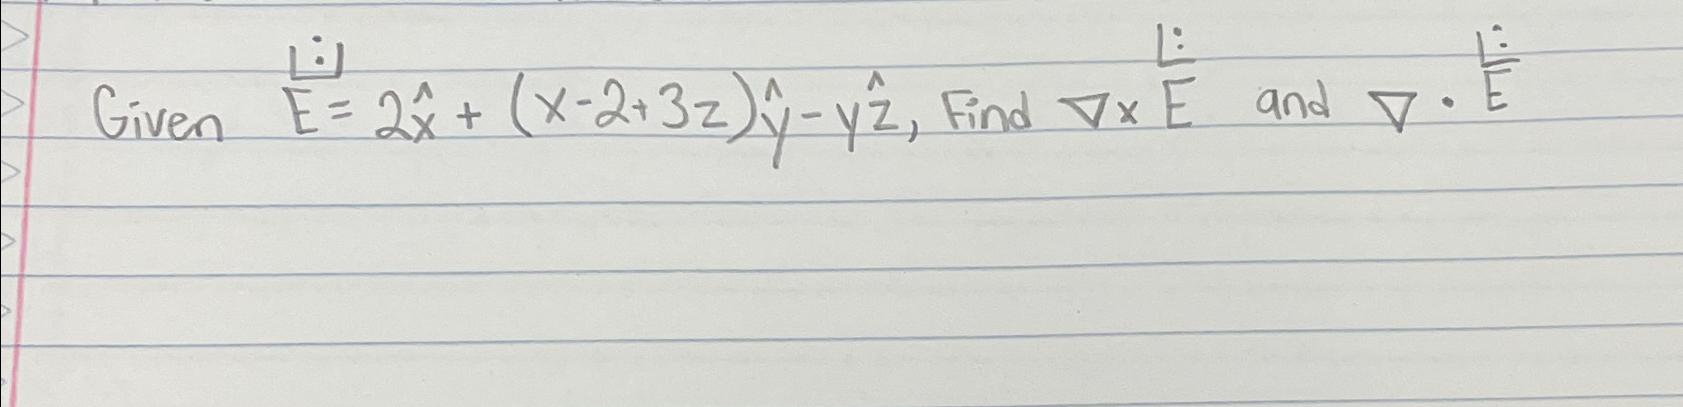 Given E = 2x̂ + (x-2+3z)ŷ - yẑ, Find ∇ x E and ∇ · E